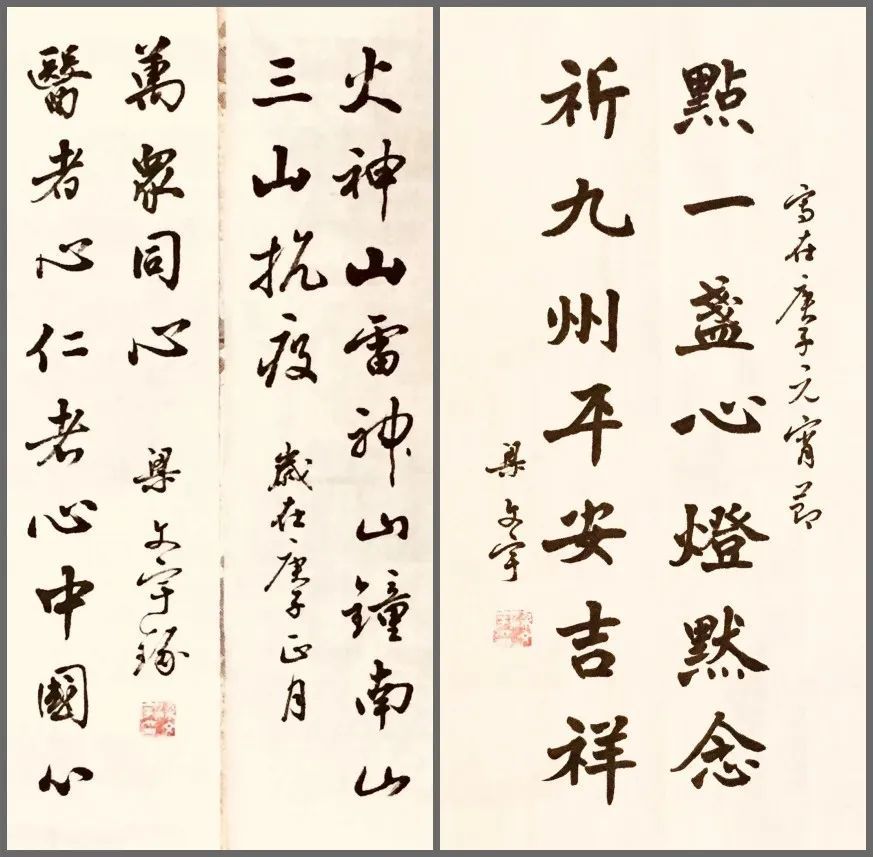 火神山雷神山鐘南山
三山抗疫
歲在庚子正月
醫者心仁者心中國心
萬眾同心
梁文宇
寫在庚子元宵節
點一盞心燈默念
祈九州平安吉祥
梁文宇